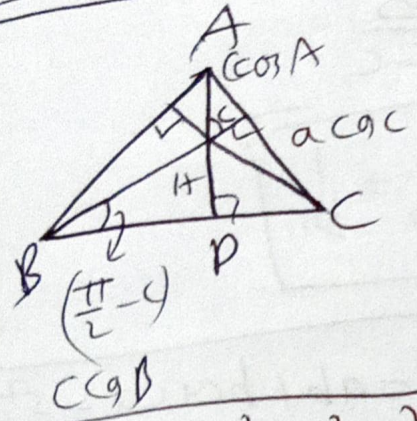 A
c cos A
C
a cos C
H
B
D
C
(π/2 - C)
c cos B